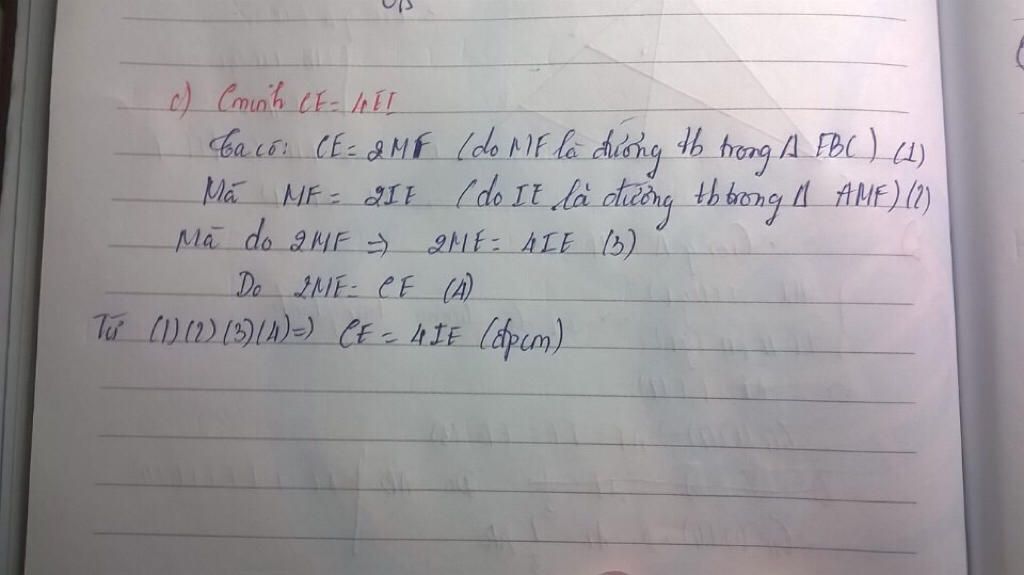 c) Cminh CE = 4EI
ta có: CE = 2MF (do MF là đường tb trong Δ EBC) (1)
Mà MF = 2IE (do IE là đường tb trong Δ AMF) (2)
Mà do 2MF ⇒ 2MF = 4IE (3)
Do 2MF = CE (4)
Từ (1)(2)(3)(4) ⇒ CE = 4IE (đpcm)